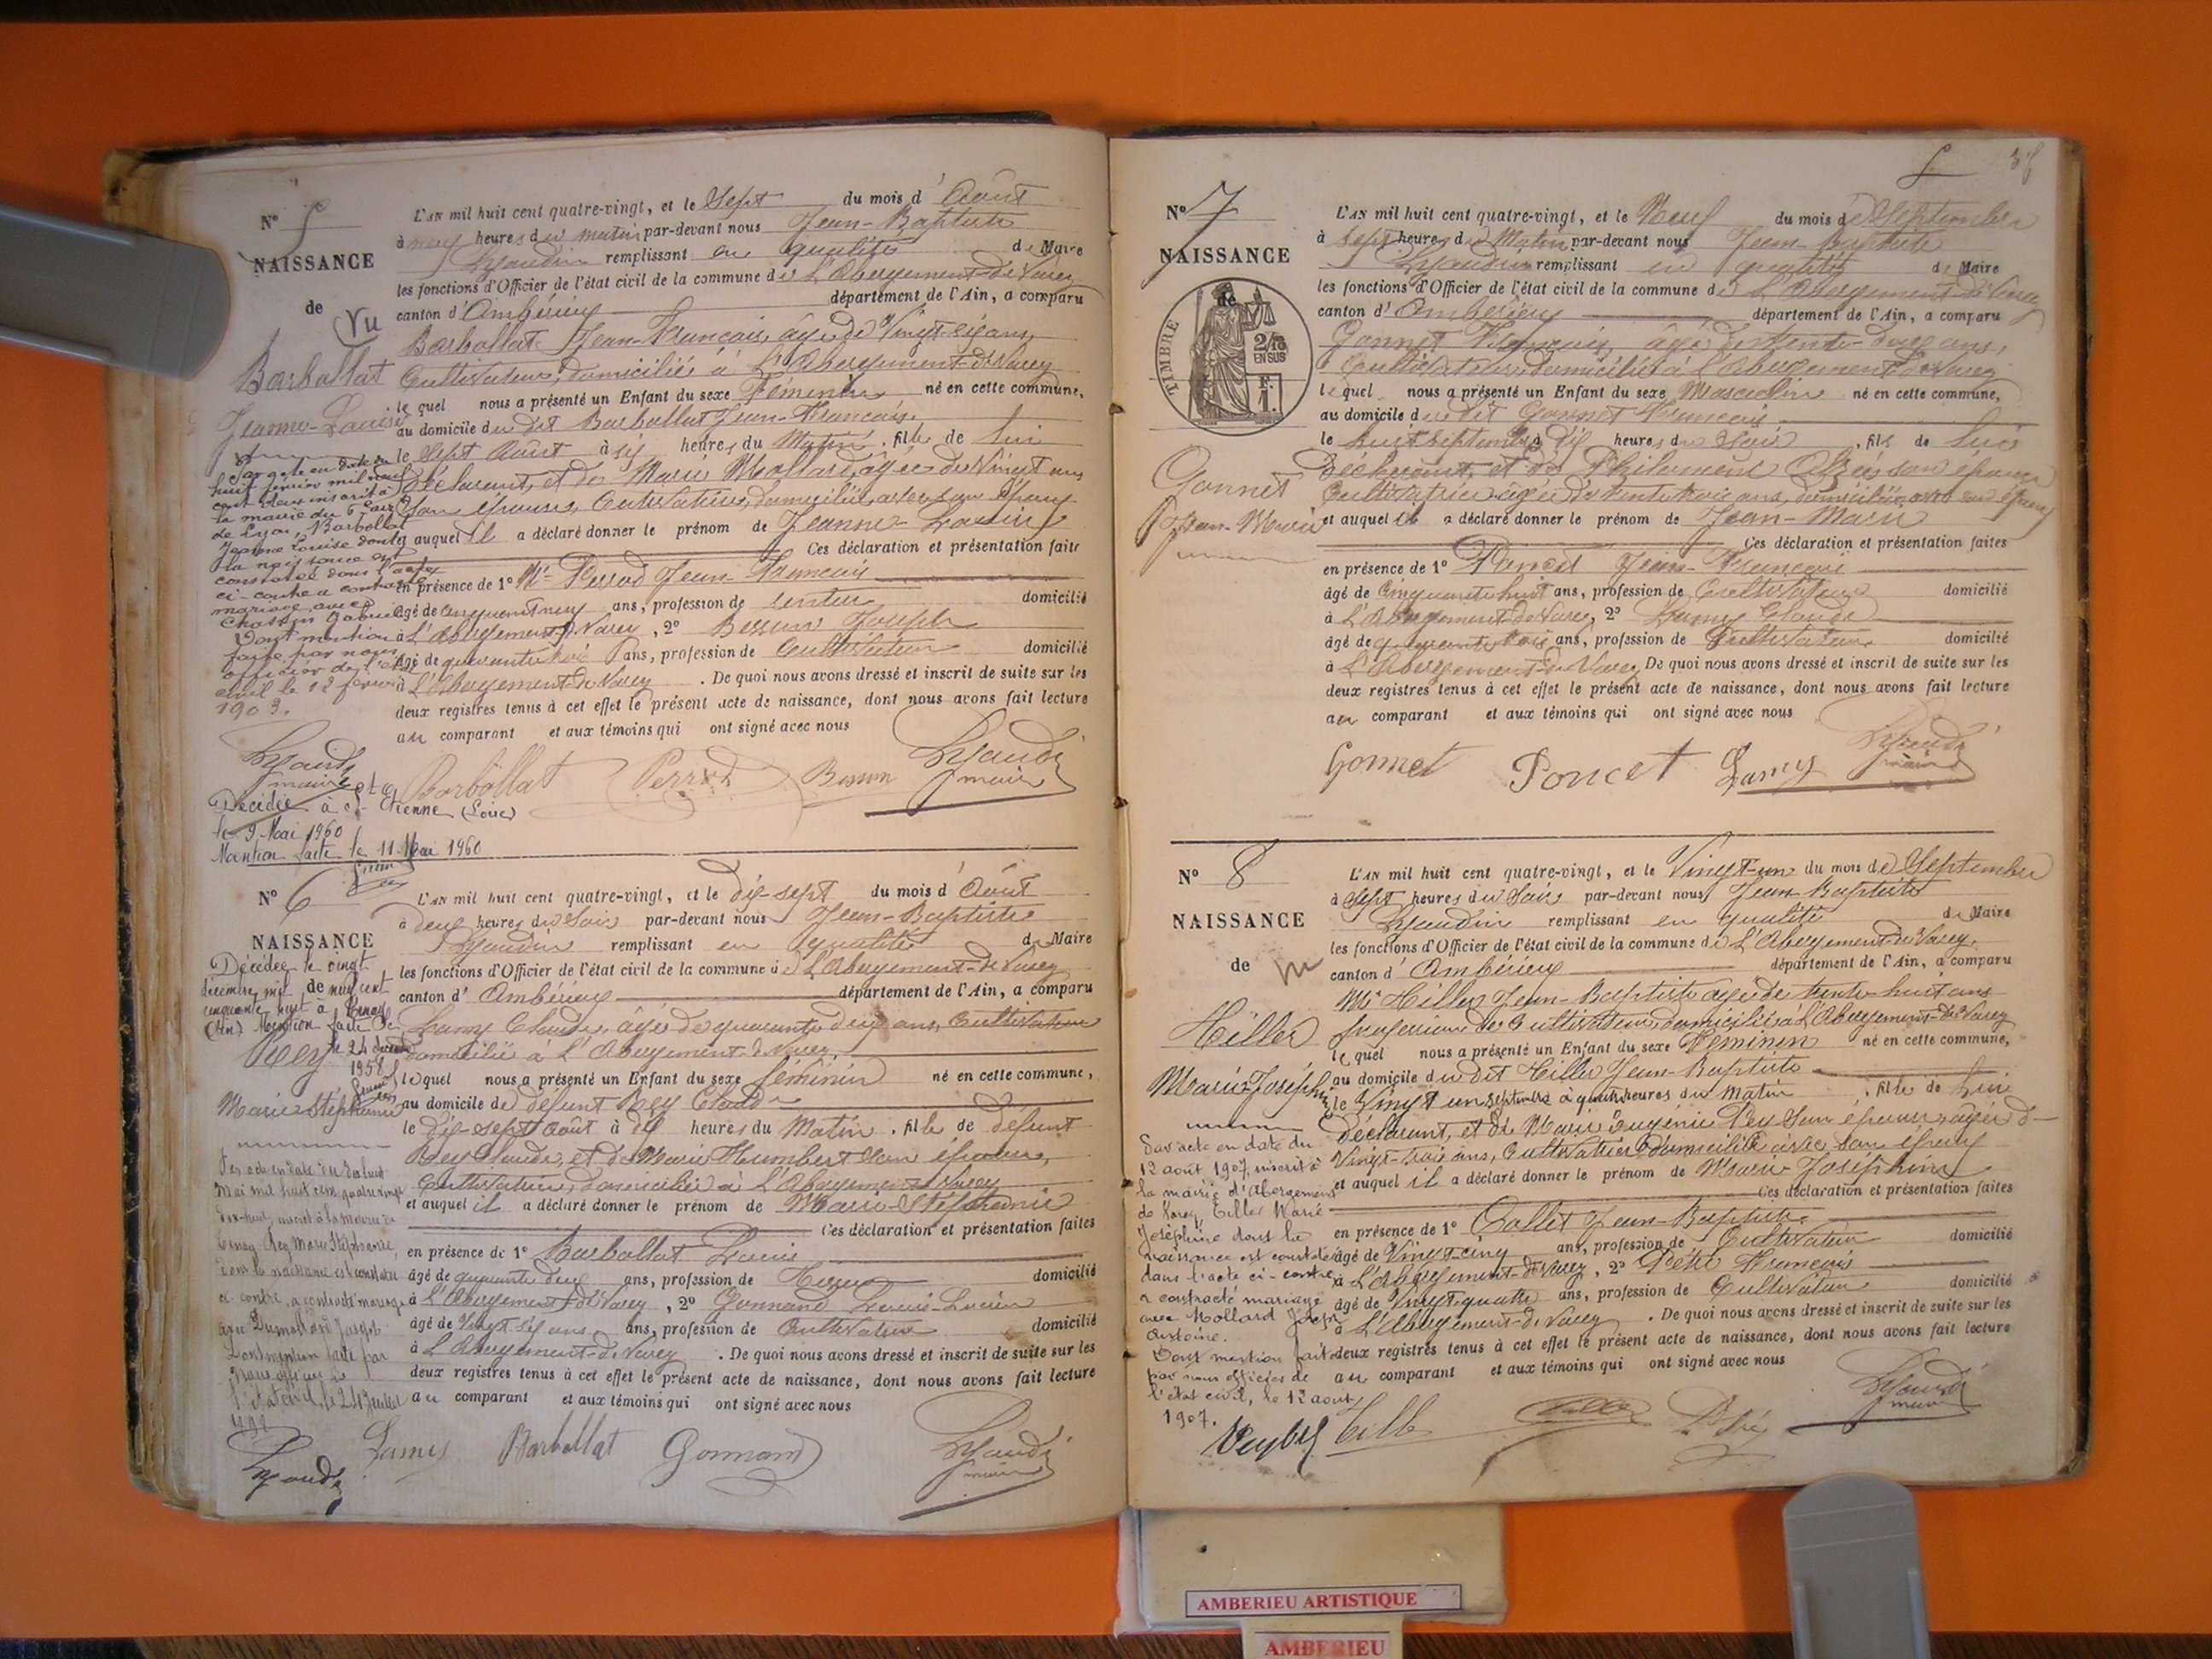 N° 5
NAISSANCE
de
Vu
Barbollat
Jeanne-Louise
Par acte en date du
huit février mil neuf
cent deux inscrit à
la mairie du 6e arr
de Lyon, Barbollat
Jeanne Louise dont
la naissance est
constatée dans l'acte
ci-contre a contracté
mariage avec
Chasson Gabriel
Dont mention
faite par nous
officier de l'état
civil le 12 février
1903.
maire
Décédée à St Etienne (Loire)
le 9 Mai 1960
Mention faite le 11 Mai 1960
L'AN mil huit cent quatre-vingt, et le Sept du mois d'Août
à neuf heures du matin par-devant nous Jean-Baptiste
Lyaudin remplissant en qualité de Maire
les fonctions d'Officier de l'état civil de la commune de L'Abergement-de-Varey
canton d'Ambérieu département de l'Ain, a comparu
Barbollat Jean-Francois, âgé de Vingt-six ans,
Cultivateur, domicilié à L'Abergement-de-Varey
lequel nous a présenté un Enfant du sexe Féminin né en cette commune,
au domicile du dit Barbollat Jean-Francois.
le Sept Août à six heures du Matin, fille de lui
Déclarant, et de Marie Mollard, âgée de Vingt ans
Son épouse, Cultivatrice, domiciliée avec son Epoux
et auquel il a déclaré donner le prénom de Jeanne-Louise
Ces déclaration et présentation faite
en présence de 1° Mr Perrod Jean-Francois
âgé de cinquante neuf ans, profession de rentier domicilié
à L'Abergement-de-Varey, 2° Besson Joseph
âgé de quarante trois ans, profession de Cultivateur domicilié
à L'Abergement-de-Varey. De quoi nous avons dressé et inscrit de suite sur les
deux registres tenus à cet effet le présent acte de naissance, dont nous avons fait lecture
au comparant et aux témoins qui ont signé avec nous
Barbollat Perrod Besson Lyaudin
maire
N° 6
NAISSANCE
de
Décédée le vingt
décembre mil neuf cent
cinquante huit à
(Ain) Mention faite
le 24 décembre
1958
Rey
Marie-Stéphanie
Par acte en date du
Mai mil huit cent quatre vingt
dix-huit, inscrit à la mairie de
Rey Marie Stéphanie,
dont la naissance est constatée
ci-contre, a contracté mariage
avec Dumollard Joseph
Dont mention faite par
Nous officier de
l'état civil, le 24 Juillet
L'AN mil huit cent quatre-vingt, et le dix-sept du mois d'Août
à deux heures du Soir par-devant nous Jean-Baptiste
Lyaudin remplissant en qualité de Maire
les fonctions d'Officier de l'état civil de la commune de L'Abergement-de-Varey
canton d'Ambérieu département de l'Ain, a comparu
Lamy Claude, âgé de quarante deux ans, Cultivateur
domicilié à L'Abergement-de-Varey,
lequel nous a présenté un Enfant du sexe féminin né en cette commune,
au domicile de défunt Rey Claude
le dix-sept Août à dix heures du Matin, fille de défunt
Rey Claude, et de Marie Humbert son épouse,
Cultivatrice, domiciliée à L'Abergement-de-Varey
et auquel il a déclaré donner le prénom de Marie-Stéphanie
Ces déclaration et présentation faites
en présence de 1° Barbollat Louis
âgé de quarante deux ans, profession de domicilié
à L'Abergement-de-Varey, 2° Gonnand Louis-Lucien
âgé de Vingt-six ans ans, profession de Cultivateur domicilié
à L'Abergement-de-Varey. De quoi nous avons dressé et inscrit de suite sur les
deux registres tenus à cet effet le présent acte de naissance, dont nous avons fait lecture
au comparant et aux témoins qui ont signé avec nous
Lamy Barbollat Gonnand Lyaudin
maire
N° 7
NAISSANCE
de
TIMBRE
2/10
EN SUS
F.
1.
Gonnet
Jean-Marie
L'AN mil huit cent quatre-vingt, et le Neuf du mois de Septembre
à Sept heures du Matin par-devant nous Jean-Baptiste
Lyaudin remplissant en qualité de Maire
les fonctions d'Officier de l'état civil de la commune de L'Abergement-de-Varey
canton d'Ambérieu département de l'Ain, a comparu
Gonnet Francois, âgé de trente-deux ans,
Cultivateur, domicilié à L'Abergement-de-Varey
lequel nous a présenté un Enfant du sexe Masculin né en cette commune,
au domicile du dit Gonnet Francois
le huit Septembre à dix heures du Soir, fils de lui
Déclarant, et de Philomène son épouse
Cultivatrice âgée de trente trois ans, domiciliée avec son époux
et auquel il a déclaré donner le prénom de Jean-Marie
Ces déclaration et présentation faites
en présence de 1° Poncet Jean-Francois
âgé de Cinquante huit ans, profession de Cultivateur domicilié
à L'Abergement-de-Varey, 2° Lamy Claude
âgé de quarante trois ans, profession de Cultivateur domicilié
à L'Abergement-de-Varey. De quoi nous avons dressé et inscrit de suite sur les
deux registres tenus à cet effet le présent acte de naissance, dont nous avons fait lecture
au comparant et aux témoins qui ont signé avec nous
Gonnet Poncet Lamy Lyaudin
maire
N° 8
NAISSANCE
de
Hiller
Marie-Joséphine
Par acte en date du
12 août 1907, inscrit à
la mairie d'Abergement
de Varey, Hiller Marie
Joséphine dont la
naissance est constatée
dans l'acte ci-contre
a contracté mariage
avec Mollard Joseph
Antoine.
Dont mention faite
par nous officier de
l'état civil, le 12 août
1907.
L'AN mil huit cent quatre-vingt, et le Vingt-un du mois de Septembre
à Sept heures du Soir par-devant nous Jean-Baptiste
Lyaudin remplissant en qualité de Maire
les fonctions d'Officier de l'état civil de la commune de L'Abergement-de-Varey,
canton d'Ambérieu département de l'Ain, a comparu
Mr Hiller Jean-Baptiste âgé de trente-huit ans
profession de Cultivateur, domicilié à L'Abergement-de-Varey
lequel nous a présenté un Enfant du sexe Féminin né en cette commune,
au domicile du dit Hiller Jean-Baptiste
le Vingt un septembre à quatre heures du Matin, fille de lui
Déclarant, et de Marie Eugénie Rey Son épouse, âgée de
Vingt-trois ans, Cultivatrice domiciliée avec son époux
et auquel il a déclaré donner le prénom de Marie-Joséphine
Ces déclaration et présentation faites
en présence de 1° Collet Jean-Baptiste
âgé de Vingt-cinq ans, profession de Cultivateur domicilié
à L'Abergement-de-Varey, 2° Petit Francois
âgé de Vingt-quatre ans, profession de Cultivateur domicilié
à L'Abergement-de-Varey. De quoi nous avons dressé et inscrit de suite sur les
deux registres tenus à cet effet le présent acte de naissance, dont nous avons fait lecture
au comparant et aux témoins qui ont signé avec nous
Lyaudin
maire
AMBERIEU ARTISTIQUE
AMBERIEU